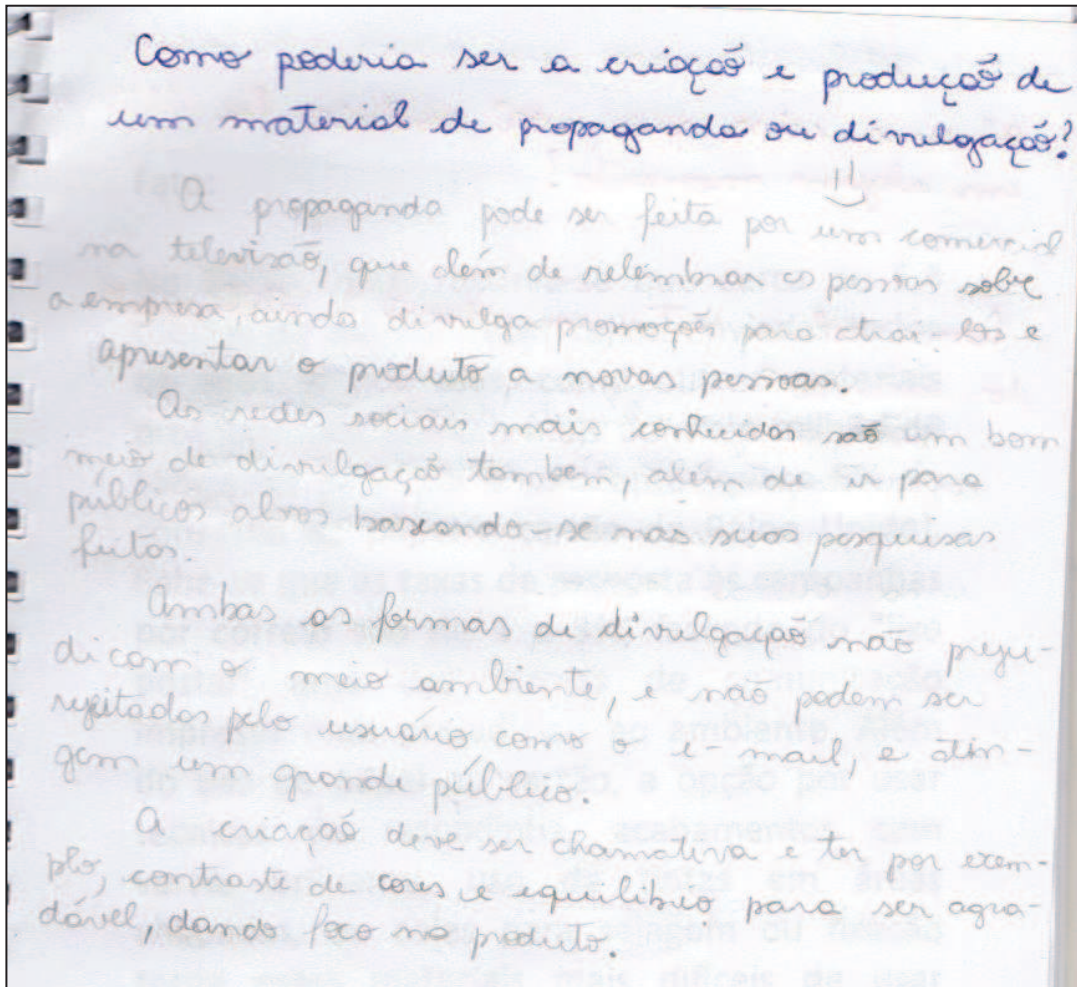 Como poderia ser a criação e produção de
um material de propaganda ou divulgação?
A propaganda pode ser feita por um comercial
na televisão, que além de relembrar as pessoas sobre
a empresa, ainda divulga promoções para atraí-los e
apresentar o produto a novas pessoas.
As redes sociais mais conhecidas são um bom
meio de divulgação também, além de ir para
públicos alvos baseando se nas suas pesquisas
feitas.
Ambas as formas de divulgação não preju-
dicam o meio ambiente, e não podem ser
rejeitados pelo usuário como o e-mail, e atin-
gem um grande público.
A criação deve ser chamativa e ter por exem-
plo, contraste de cores e equilíbrio para ser agra-
dável, dando foco no produto.